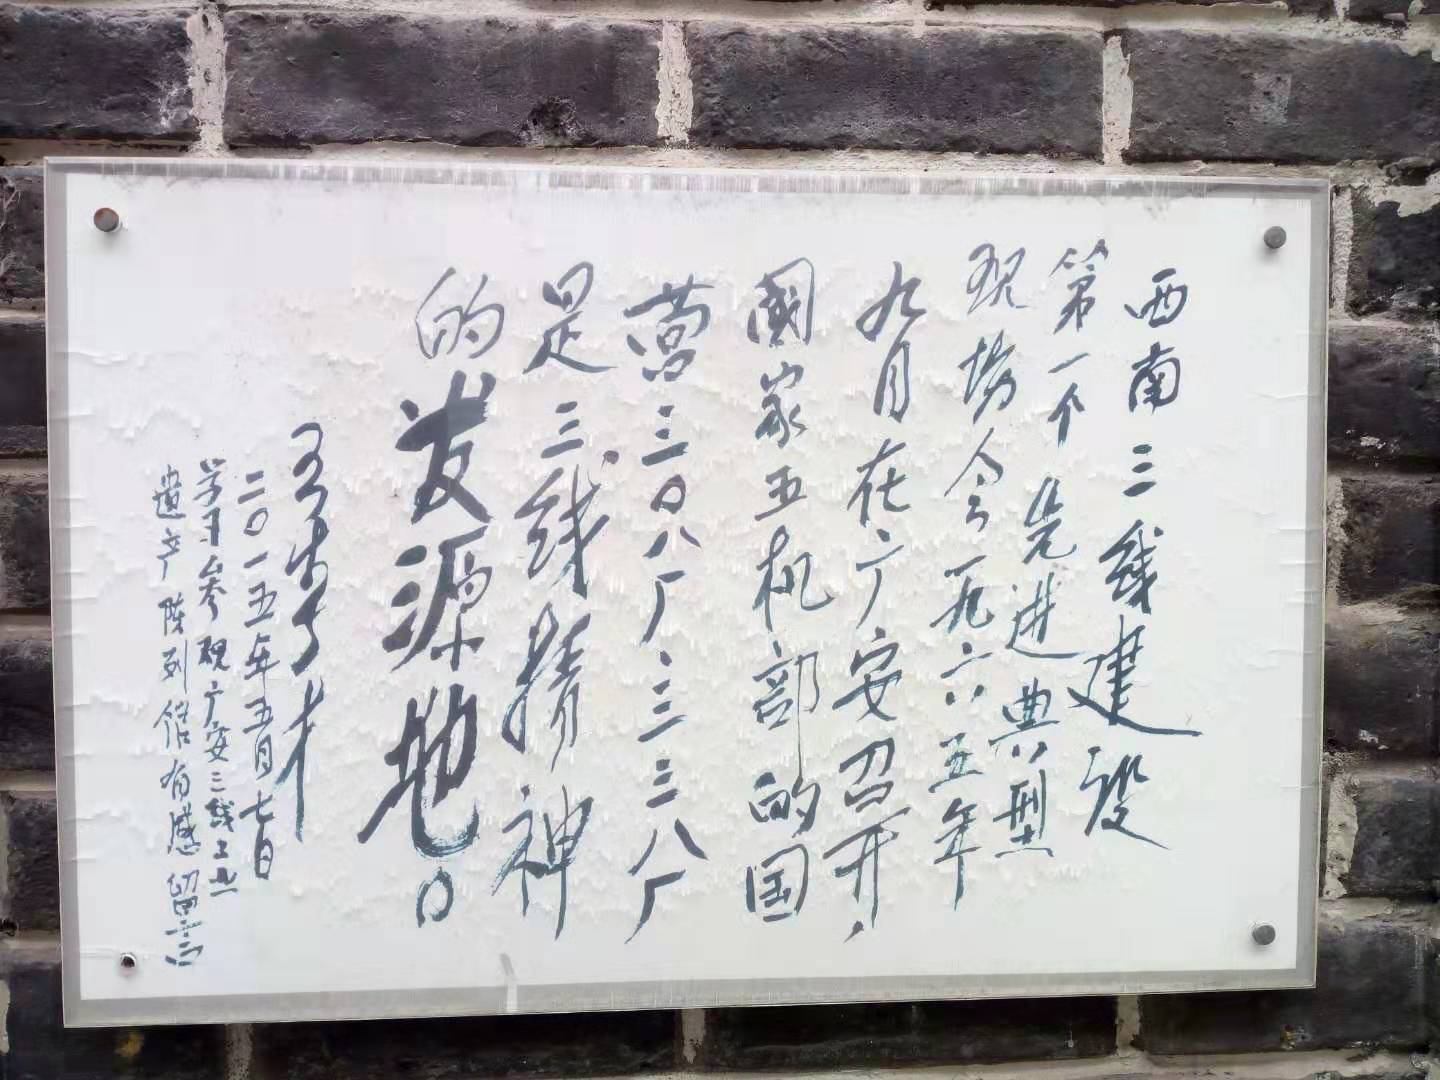 西南三线建设
第一个先进典型
现场会一九六五年
九月在广安召开，
國家五机部的国
营三〇八厂三三八厂
是三线精神
的发源地。
二〇一五年五月七日
学习参观广安三线工业
遗产陈列馆有感留言